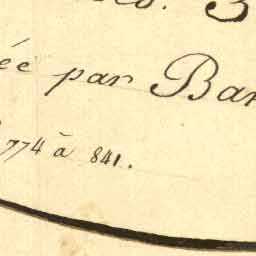 3
par Bar
774 à 841.